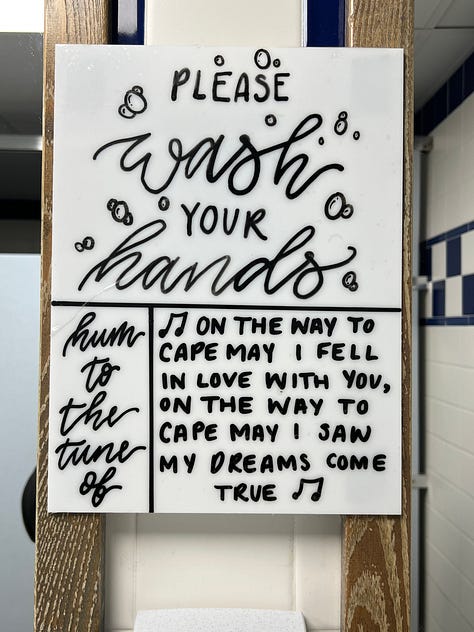 PLEASE
wash
YOUR
hands
hum
to
the
tune
of
♫ ON THE WAY TO
CAPE MAY I FELL
IN LOVE WITH YOU,
ON THE WAY TO
CAPE MAY I SAW
MY DREAMS COME
TRUE ♫